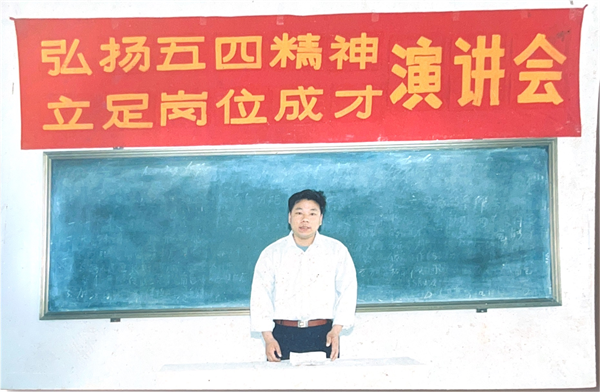 弘扬五四精神
立足岗位成才
演讲会